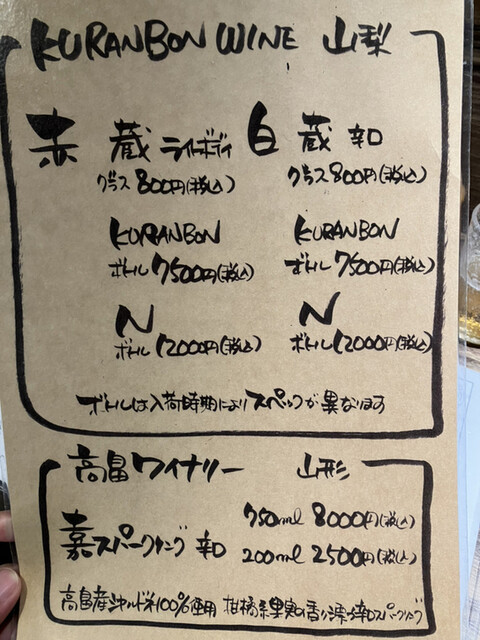 KURANBON WINE 山梨
赤 蔵 ライトボディ 白 蔵 辛口
グラス 800円(税込) グラス 800円(税込)
KURANBON KURANBON
ボトル 7500円(税込) ボトル 7500円(税込)
N N
ボトル 12000円(税込) ボトル 12000円(税込)
ボトルは入荷時期によりスペックが異なります
高畠ワイナリー 山形
嘉スパークリング 辛口 750ml 8000円(税込)
200ml 2500円(税込)
高畠産シャルドネ100%使用 柑橘系果実の香り漂う辛口スパークリング